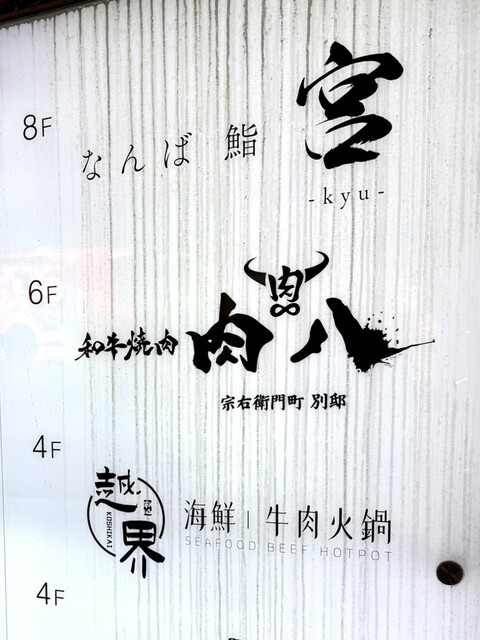 8F
なんば 鮨 宮
-kyu-
6F
肉
和牛焼肉 肉八
宗右衛門町 別邸
4F
越界
KOSHIKAI
海鮮 | 牛肉火鍋
SEAFOOD BEEF HOTPOT
4F